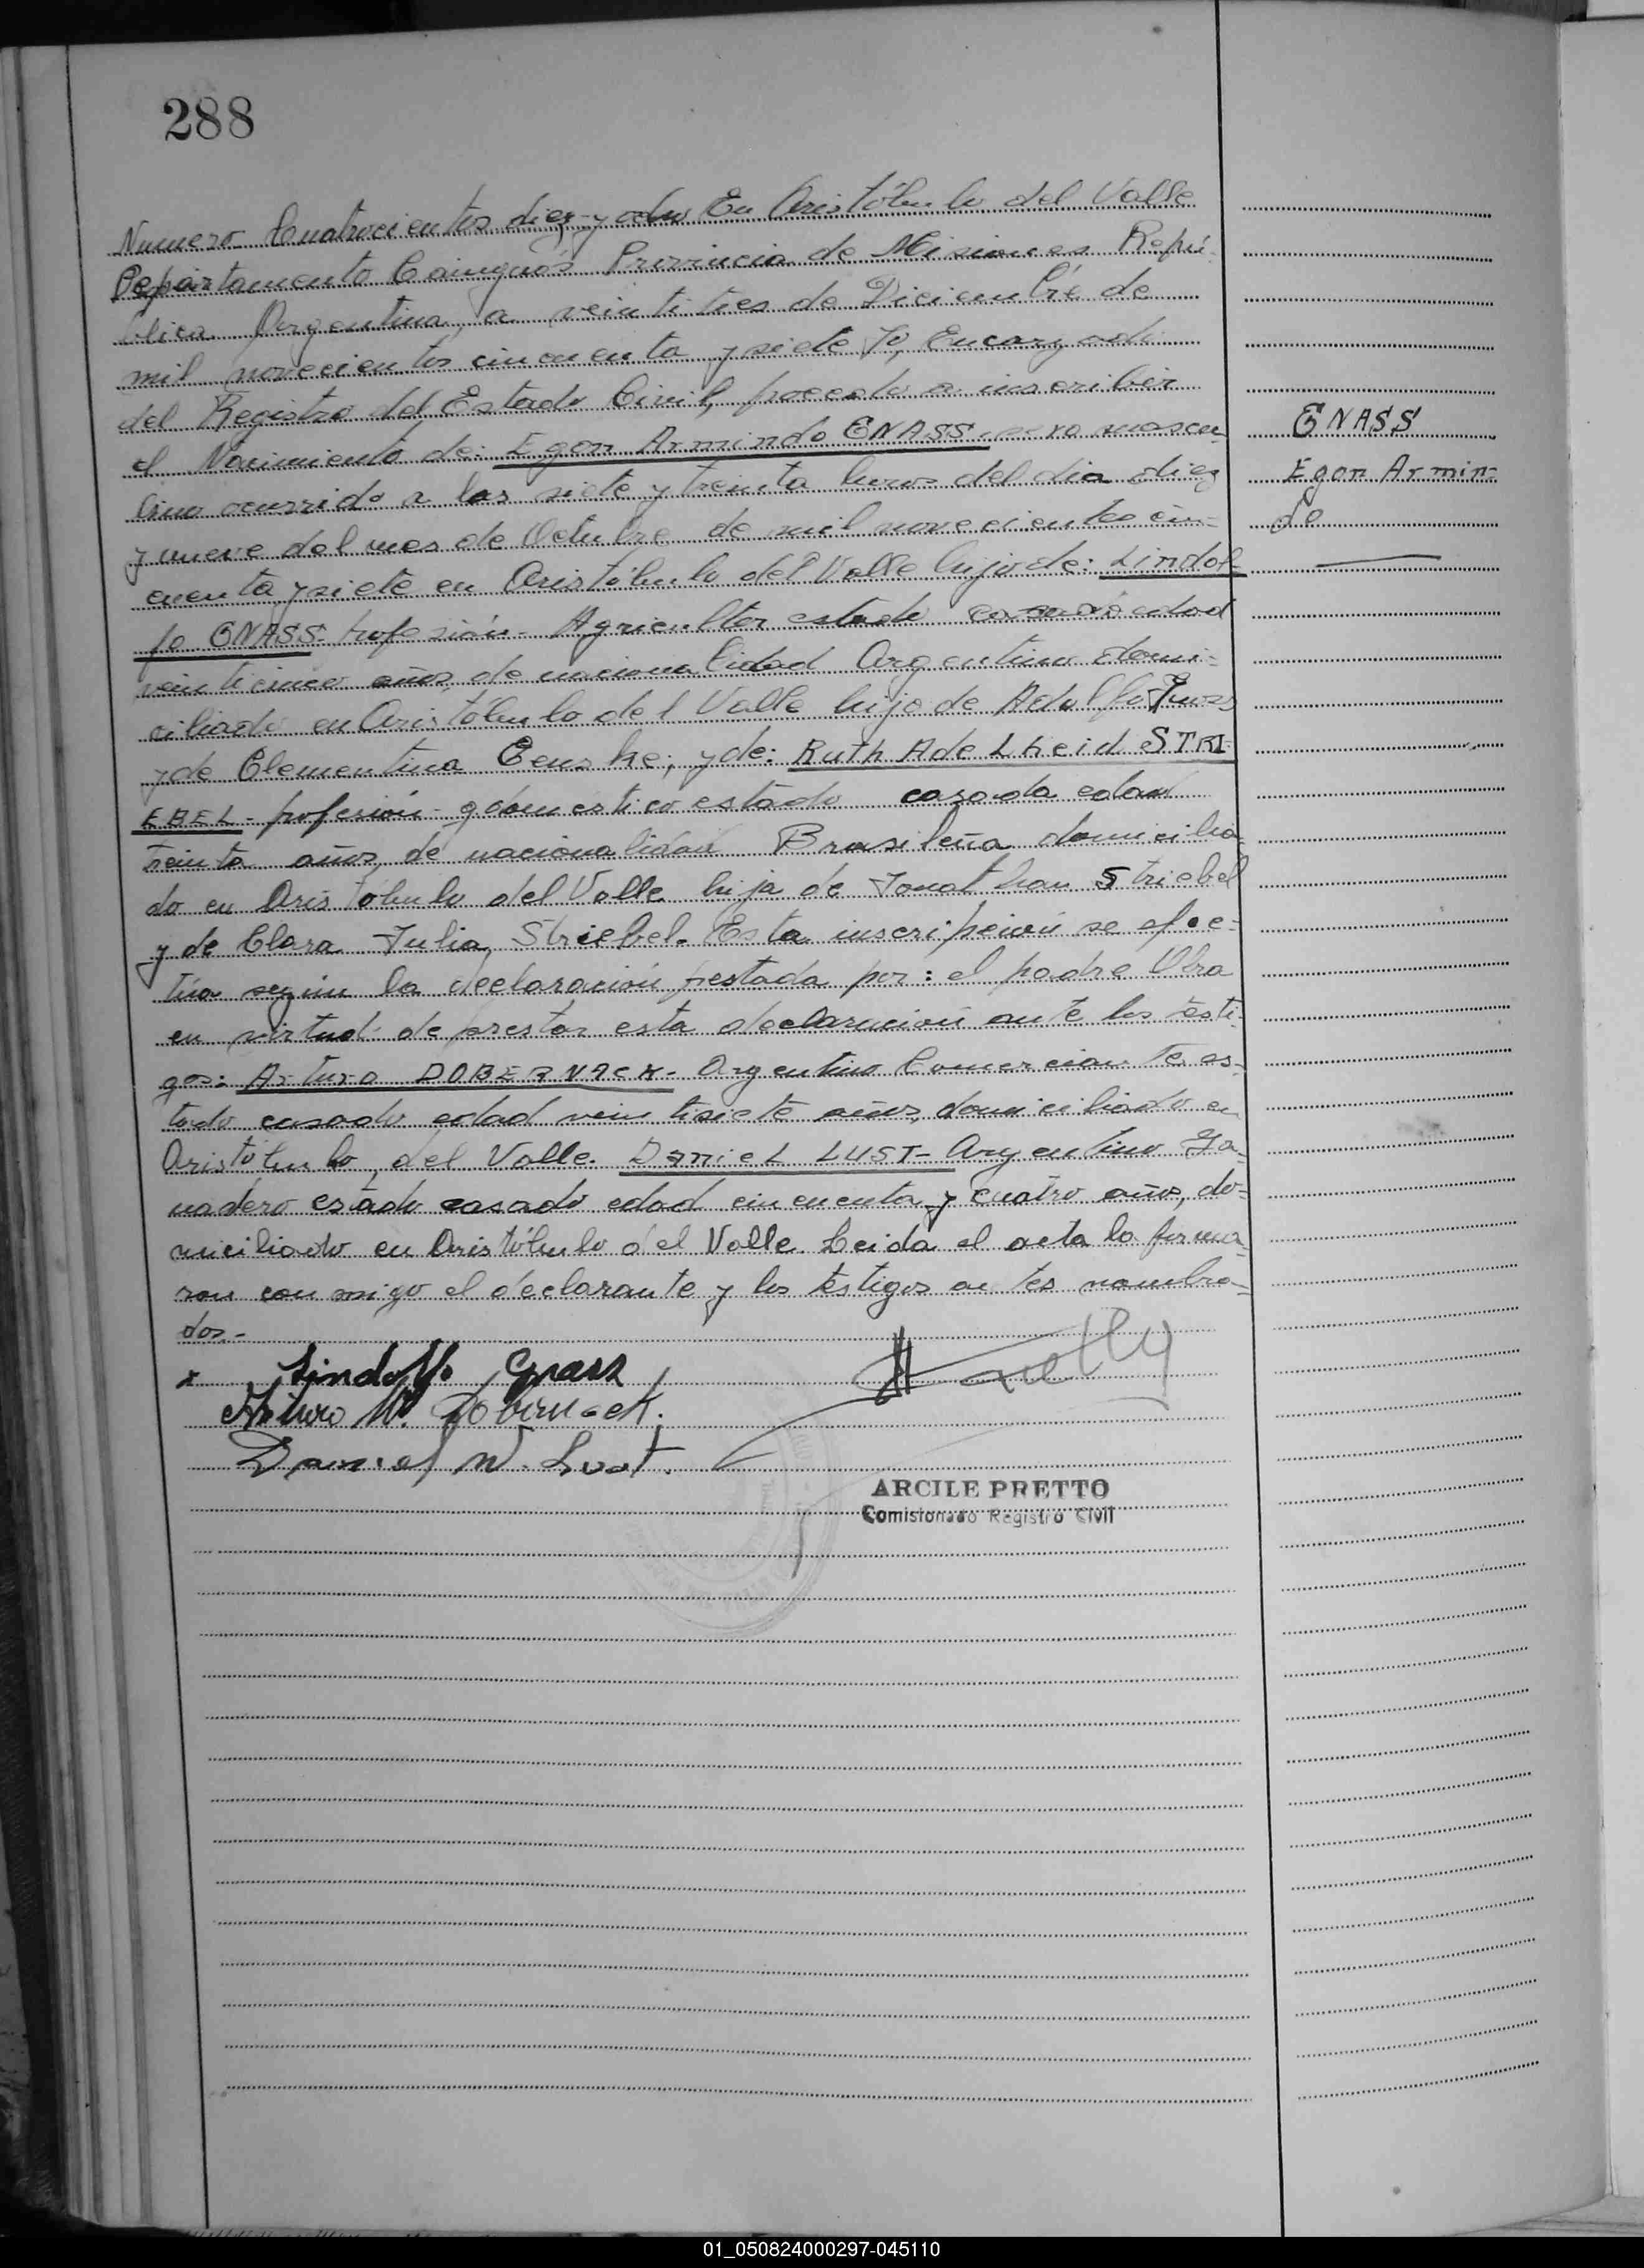 288
Numero Cuatrocientos diez y ocho En Aristóbulo del Valle
Departamento Cainguás Provincia de Misiones Repú-
blica Argentina, a veintitres de Diciembre de
mil novecientos cincuenta y siete Yo, Encargado
del Registro del Estado Civil, procedo a inscribir
el Nacimiento de: Egon Armindo GNASS - sexo mascu-
lino ocurrido a las siete y treinta horas del dia diez
y nueve del mes de Octubre de mil novecientos cin-
cuenta y siete en Aristóbulo del Valle hijo de: Lindol-
fo GNASS - profesión - Agricultor estado casado edad
veinticinco años, de nacionalidad Argentino domi-
ciliado en Aristóbulo del Valle hijo de Adolfo Gnass
y de Clementina; y de: Ruth Adelheid STRI-
EBEL - profesión - q. domestico estado casada edad
treinta años, de nacionalidad Brasileña domicilia-
do en Aristóbulo del Valle hija de Jonathan Striebel
y de Clara Julia Striebel. Esta inscripción se efec-
túa según la declaración prestada por: el padre Obra
en virtud de prestar esta declaración ante los testi-
gos: Arturo DOBERNACK - Argentino Comerciante es-
tado casado edad veintisiete años, domiciliado en
Aristóbulo del Valle. Daniel LUST - Argentino Ga-
nadero estado casado edad cincuenta y cuatro años, do-
miciliado en Aristóbulo del Valle. Leida el acta la firma-
ron conmigo el declarante y los testigos antes nombra-
dos.-
x Lindolfo Gnass
Arturo W. Dobernack.
Daniel W. Lust.
ARCILE PRETTO
Comisionado Registro Civil
GNASS
Egon Armin-
do
01_050824000297-045110